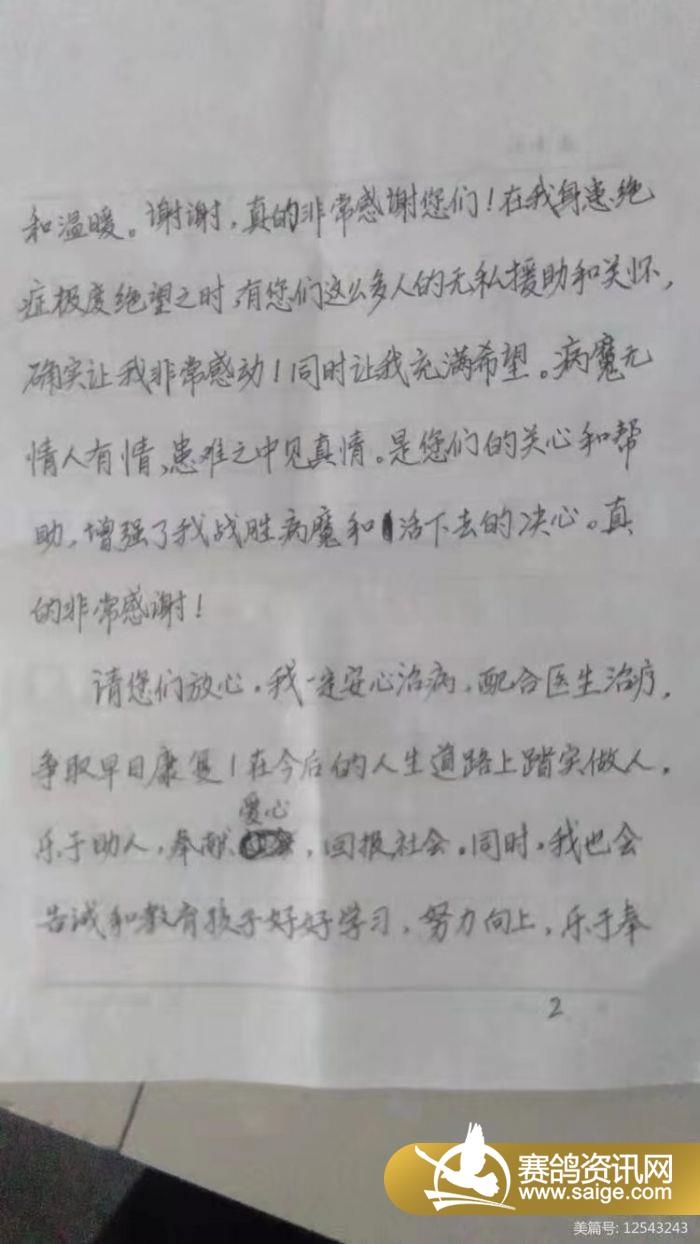 和温暖。谢谢,真的非常感谢您们!在我身患绝
症极度绝望之时,有您们这么多人的无私援助和关怀,
确实让我非常感动!同时让我充满希望。病魔无
情人有情,患难之中见真情。是您们的关心和帮
助,增强了我战胜病魔和活下去的决心。真
的非常感谢!
请您们放心,我一定安心治病,配合医生治疗,
争取早日康复!在今后的人生道路上踏实做人,
乐于助人,奉献爱心,回报社会。同时,我也会
告诫和教育孩子好好学习,努力向上,乐于奉
2
赛鸽资讯网
www.saige.com
美篇号: 12543243